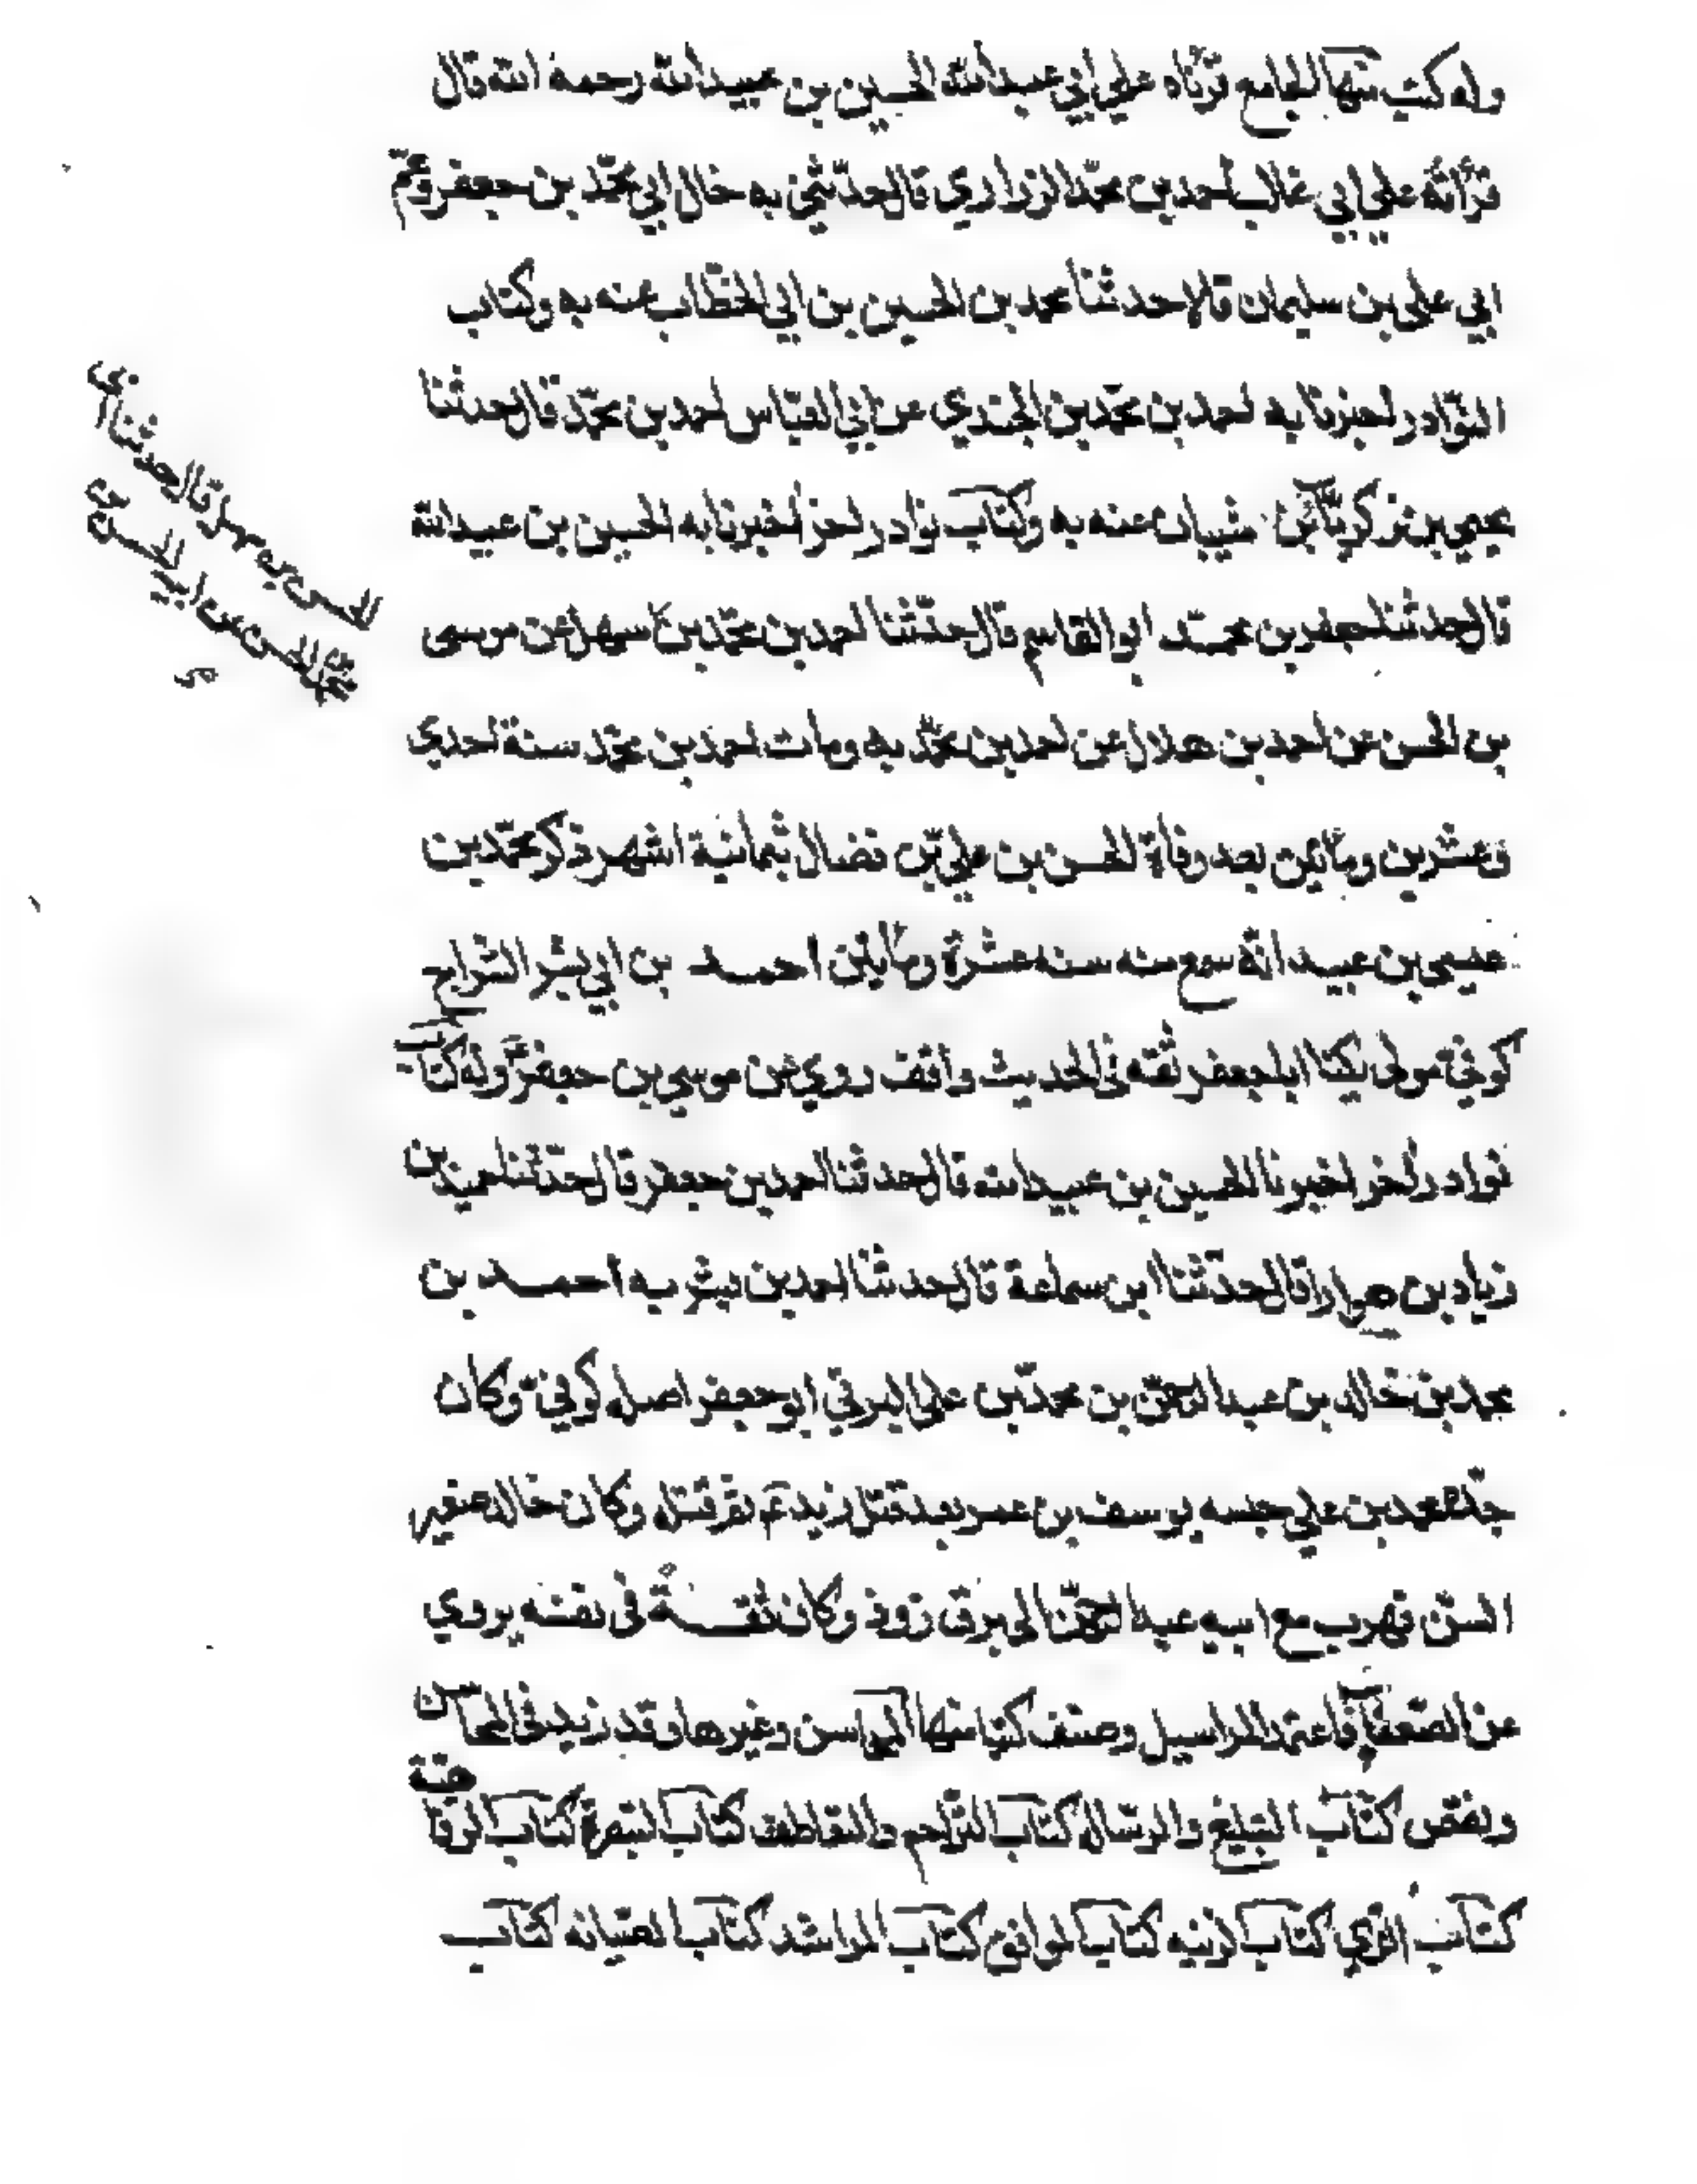 وله كتب منها الجامع قرأناه على ابي عبدالله الحسين بن عبيدالله رحمه الله قال
قرأته على ابي غالب احمد بن محمّد الزراري قال حدّثني به خال ابي محمّد بن جعفر وعمّ
ابي علي بن سليمان قالا حدثنا محمد بن الحسين بن ابي الخطاب عنه به وكتاب
النوّادر اخبرنا به احمد بن محمّد بن الجندي عن ابي العبّاس احمد بن محمّد قال حدثنا
يحيي بن زكريّا بن شيبان عنه به وكتاب نوادر اخر اخبرنا به الحسين بن عبيدالله
قال حدثنا جعفر بن محمّد ابو القاسم قال حدّثنا احمد بن محمّد بن سهل عن موسى
بن الحسن عن احمد بن هلال عن احمد بن محمّد به ومات احمد بن محمّد سنة احدي
وعشرين ومأتين بعد وفاة الحسن بن علي بن فضال بثمانية اشهر ذكر محمّد بن
عيسي بن عبيد انّه سمع منه سنه عشرة ومأتين احمد بن ابي بشر السّراج
كوفيّ مولى يكنا ابا جعفر ثقه في الحديث واقف روي عن موسي بن جعفر وله كتاب
نوادر اخر اخبرنا الحسين بن عبيدالله قال حدثنا احمد بن جعفر قال حدّثنا حميد بن
زياد بن هوارا قال حدّثنا ابن سماعة قال حدثنا احمد بن بشر به احمد بن
محمد بن خالد بن عبد الرحمّن بن محمدّ بن علي البرقي ابو جعفر اصله كوفيّ وكان
جدّه محمد بن علي حبسه يوسف بن عمر بعد قتل زيد ثم قتل وكان خالد صغير
السّن فهرب مع ابيه عبد الرحمّن الى برق زوذ وكان ثقة في نفسه يروي
عن الضعفاء واعتمد المراسيل وصنّف كتبا منها المحاسن وغيرها وقد زيد في المحاسن
ونقص كتاب التبليغ والرسّاله كتاب التراحم والتعاطف كتاب التبصرة كتاب الرفاهية
كتاب الزيّ كتاب الزينه كتاب المرافق كتاب المراشد كتاب الصيّانه كتاب
الحسن بن سهل قال حدثنا ابي
محمّد الحسن عن ابيه الحسن بن